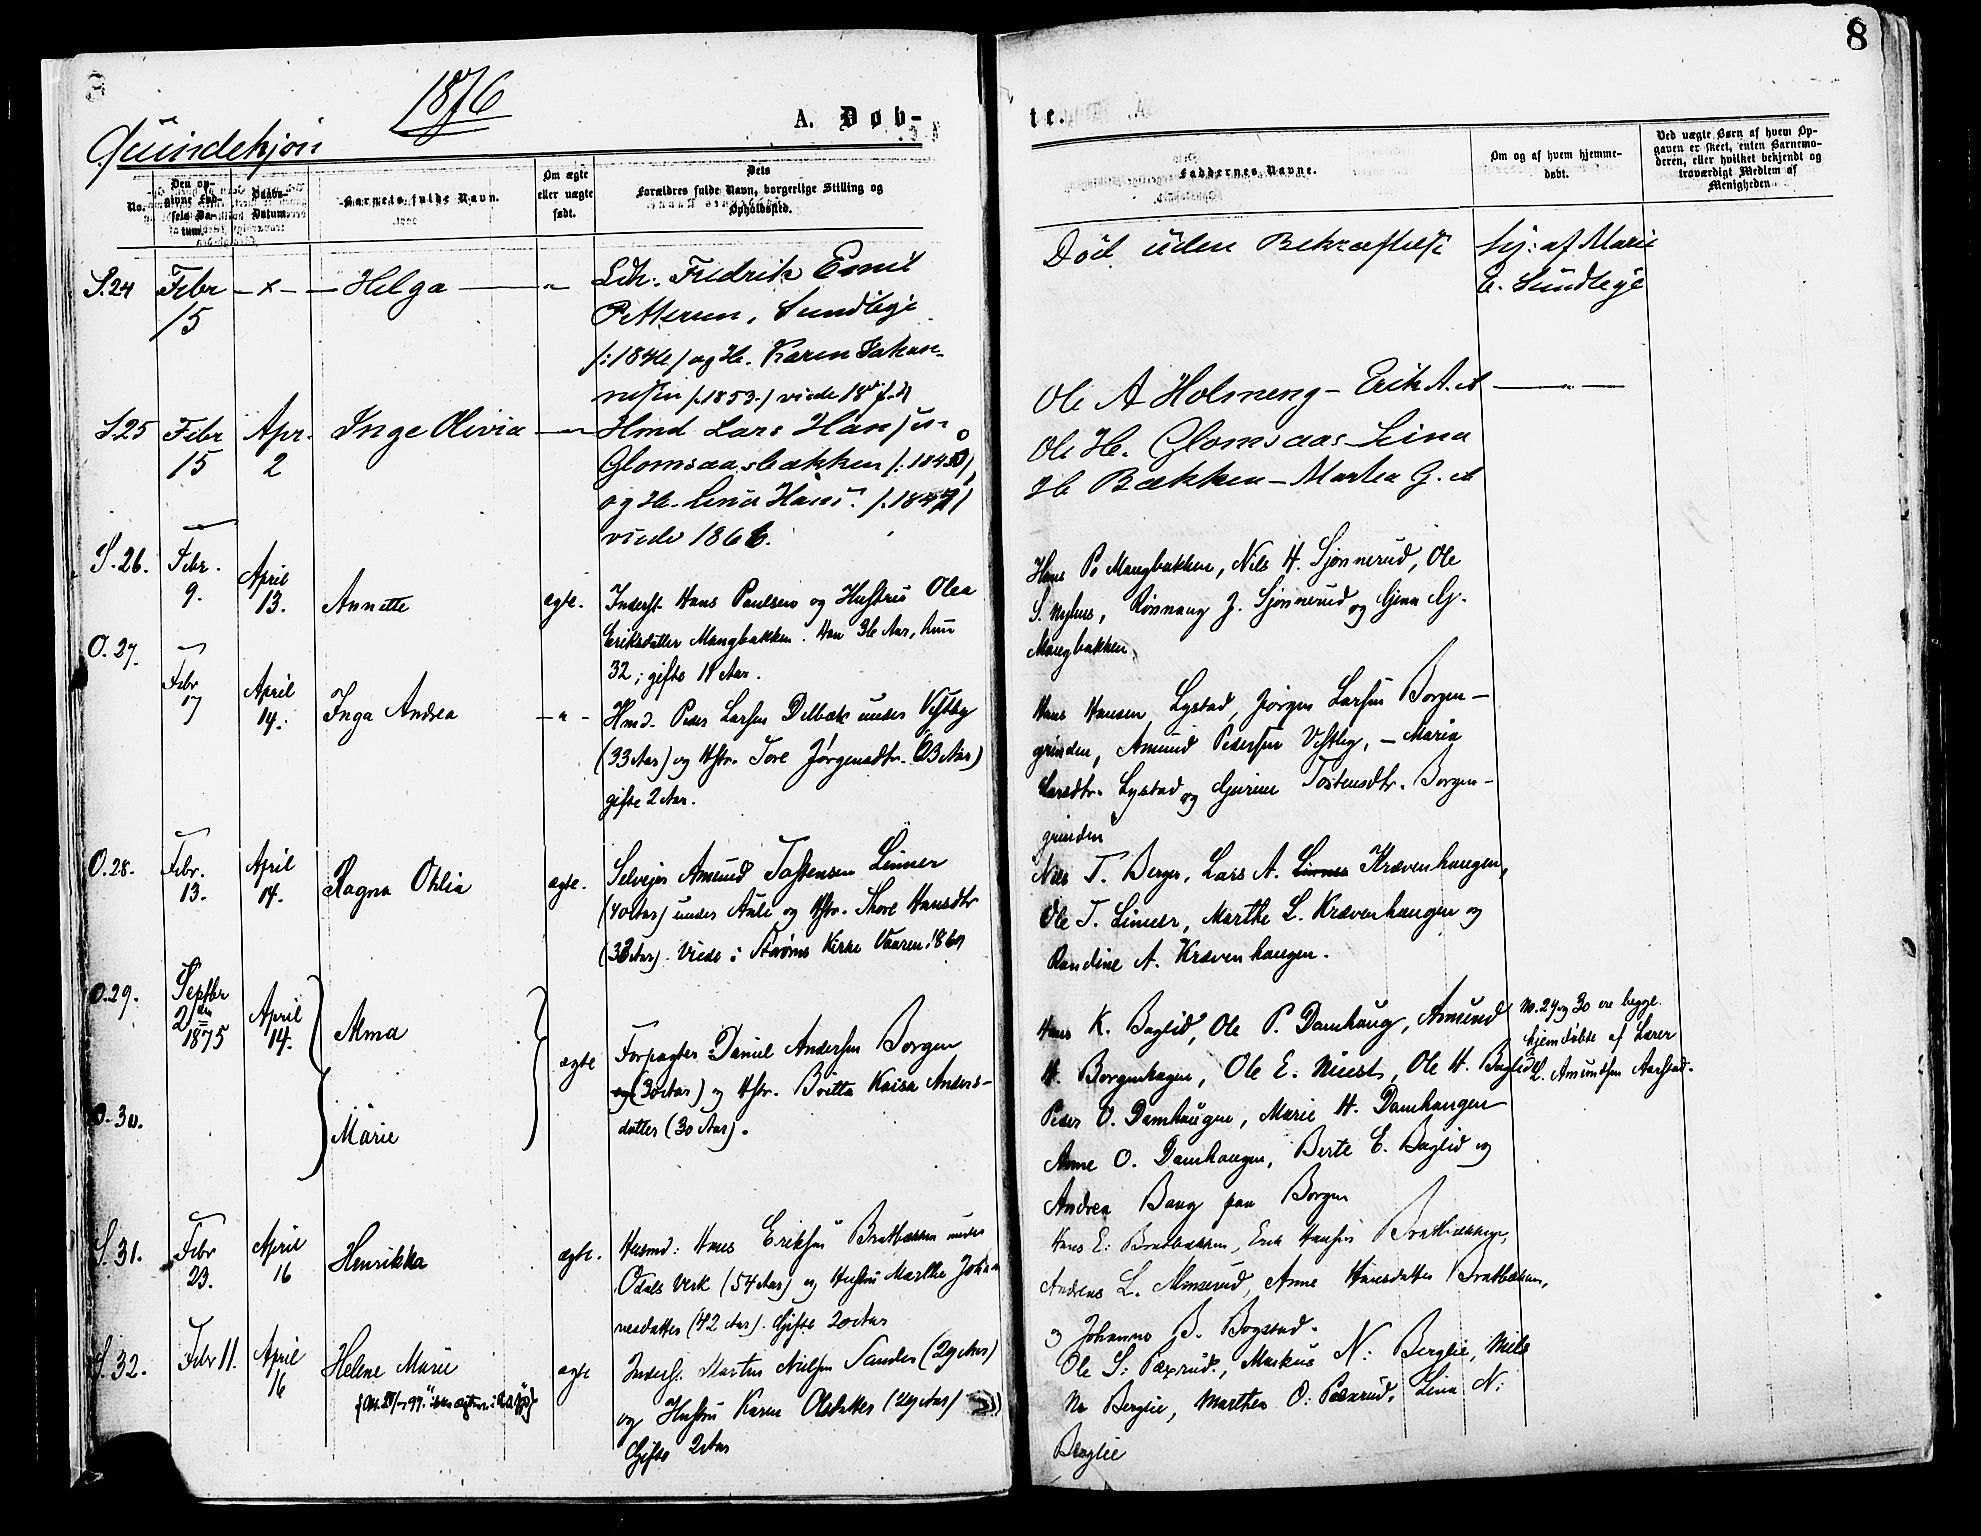 8
1876
Quindekjøn
A. Døb-
te.
8
No.
Den opgivne Fødsels Datum.
Daabs-Datum.
Barnets fulde Navn.
Om ægte eller uægte født.
Dets Forældres fulde Navn, borgerlige Stilling og Opholdssted.
Faddernes Navne.
Om og af hvem hjemme-døbt.
Ved uægte Børn af hvem Op-
gaven er skeet, enten Barnemo-
deren, eller hvilket bekjendt og
troværdigt Medlem af
Menigheden
S.24 Febr 15 - x - Helga
Fredrik Emil
Pettersen, Sundleje
og H. Karen Johan-
nesen /:1853:/ viede
Død uden Bekræftelse
hj: af Marie
E. Sundleje
S.25 Febr 15 Apr. 2 Inge Olivia
Hmd Lars Hansen
Glomsaasbakken
og H. Lina Hans
viede 1866.
Ole A Holmeng - Erik A.
Ole H. Glomsaas - Lina
H Bækken - Marthea G.
S.26. Febr. 9. April 13. Annette ægte.
Inderst. Hans Paulsen og Hustru Olea
Eriksdatter Mangbakken. Han 36 Aar, hun
32; gifte 11 Aar.
Hans P. Mangbakken, Nils H. Sjønnerud, Ole
S. Nyhus, Rønnaug J. Sjønnerud og
Mangbakken.
O.27. Febr 7 April 14. Inga Andrea - " -
Hmd. Peder Larsen Delbæk under Vestby
(33 Aar) og Hstr. Tore Jørgensdtr. (23 Aar)
gifte 2 Aar.
Hans Hansen Lystad, Jørgen Larsen Borgen-
grinden, Amund Pedersen Vestby, - Maria
Larsdtr. Lystad og Gurine Tostensdtr. Borgen-
grinden
O.28. Febr. 13. April 14. Ragna Otilia ægte.
Selvejer Amund Tostensen Linner
(40 Aar) under Auli og Hstr. Thore Hansdtr
(32 Aar). Viede i Strøms Kirke Vaaren 1869
Nils T. Berger, Lars A. Linner Krævenhaugen,
Ole T. Linner, Marthe L. Krævenhaugen og
Randine A. Krævenhaugen.
O.29. Septbr 2den 1875 April 14. Alma
ægte
Forpagter Daniel Andersen Borgen
og (30 Aar) og Hstr. Britta Kaisa Anders-
datter (30 Aar).
O.30. Marie
Hans K. Baglid, Ole P. Damhaug, Amund
H. Borgenhagen, Ole E. Nuest, Ole H. Baglid
Peder O. Damhaugen, Marie H. Damhaugen
Anne O. Damhaugen, Berte E. Baglid og
Andrea Bang paa Borgen
No. 29 og 30 ere begge
hjemdøbte af Lærer
L. Amundsen Aarstad.
S.31. Febr 23. April 16 Henrikka ægte.
Husmd: Hans Eriksen Bratbakken under
Odals Verk (54 Aar) og Hustru Marthe Johan
nesdatter (42 Aar). Gifte 20 Aar
Hans E: Bratbakken, Erik Hansen Bratbakken,
Andreas L. Monserud, Anne Hansdatter Bratbakken,
og Johanne B. Bogstad.
S.32. Febr 11. April 16 Helene Marie ægte
Inderst: Martin Nielsen Sander (29 Aar)
og Hustru Karen Olsdatter (29 Aar)
Gifte 2 Aar
Ole S: Pæxrud, Markus N: Berglie, Nils
N. Berglie, Marthea O: Pæxrud, Lina N:
Berglie